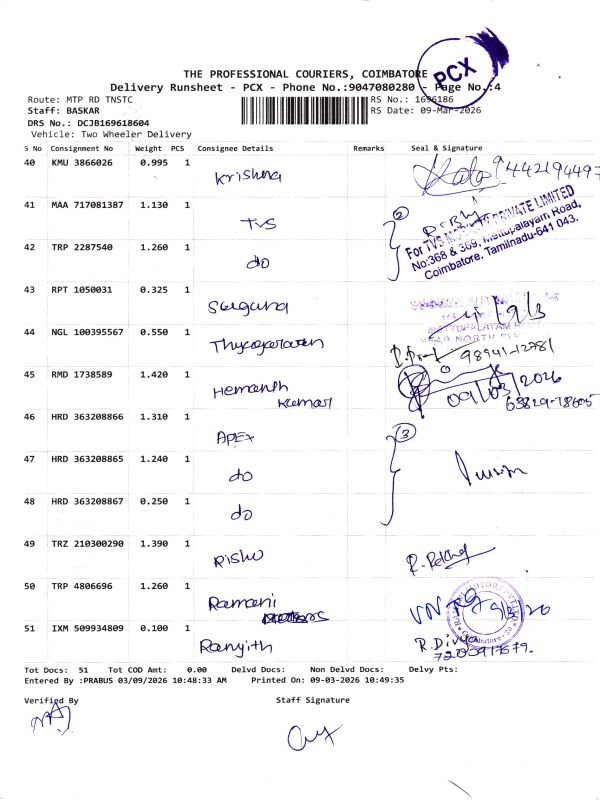 THE PROFESSIONAL COURIERS, COIMBATORE
PCX
Delivery Runsheet - PCX - Phone No.:9047080280 - Page No.:4
Route: MTP RD TNSTC
RS No.: 1696186
Staff: BASKAR
RS Date: 09-Mar-2026
DRS No.: DCJB169618604
Vehicle: Two Wheeler Delivery
S No Consignment No Weight PCS Consignee Details Remarks Seal & Signature
40 KMU 3866026 0.995 1 Krishna
41 MAA 717081387 1.130 1 TVS
For TVS PRIVATE LIMITED
No:368 & 369, Mettupalayam Road,
Coimbatore, Tamilnadu-641 043.
42 TRP 2287540 1.260 1 do
2
43 RPT 1050031 0.325 1 Suguna
44 NGL 100395567 0.550 1
98941-12781
45 RMD 1738589 1.420 1 Hemanth
Kumar
09/03/2026
46 HRD 363208866 1.310 1 APEX
3
47 HRD 363208865 1.240 1 do
48 HRD 363208867 0.250 1 do
49 TRZ 210300290 1.390 1 Rishu
50 TRP 4806696 1.260 1 Ramani
51 IXM 509934809 0.100 1 Ranjith
R. Divya
Tot Docs: 51 Tot COD Amt: 0.00 Delvd Docs: Non Delvd Docs: Delvy Pts:
Entered By :PRABUS 03/09/2026 10:48:33 AM Printed On: 09-03-2026 10:49:35
Verified By Staff Signature